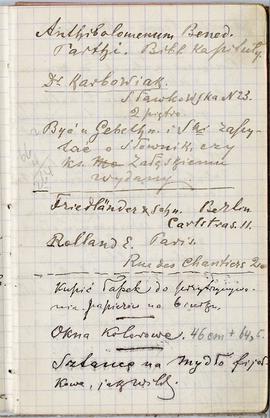 Anthibolomenum Bened.
Parthi. Bibl. Kapituły.
Dr Karbowiak.
Sławkowska N 23.
2 piętro.
Być u Gebethn. i Ski zapy-
tać o Słownik, czy
ks. Załęskiemu
wydany
Friedländer & Sohn. Berlin
Carlstras. 11.
Rolland E. Paris.
Rue des Chantiers 2
Kupić łapek do
papierów na biurze.
Okna kolorowe. 46 cm + 64,5.
Sztancę na mydło fijoł-
kowe, jak